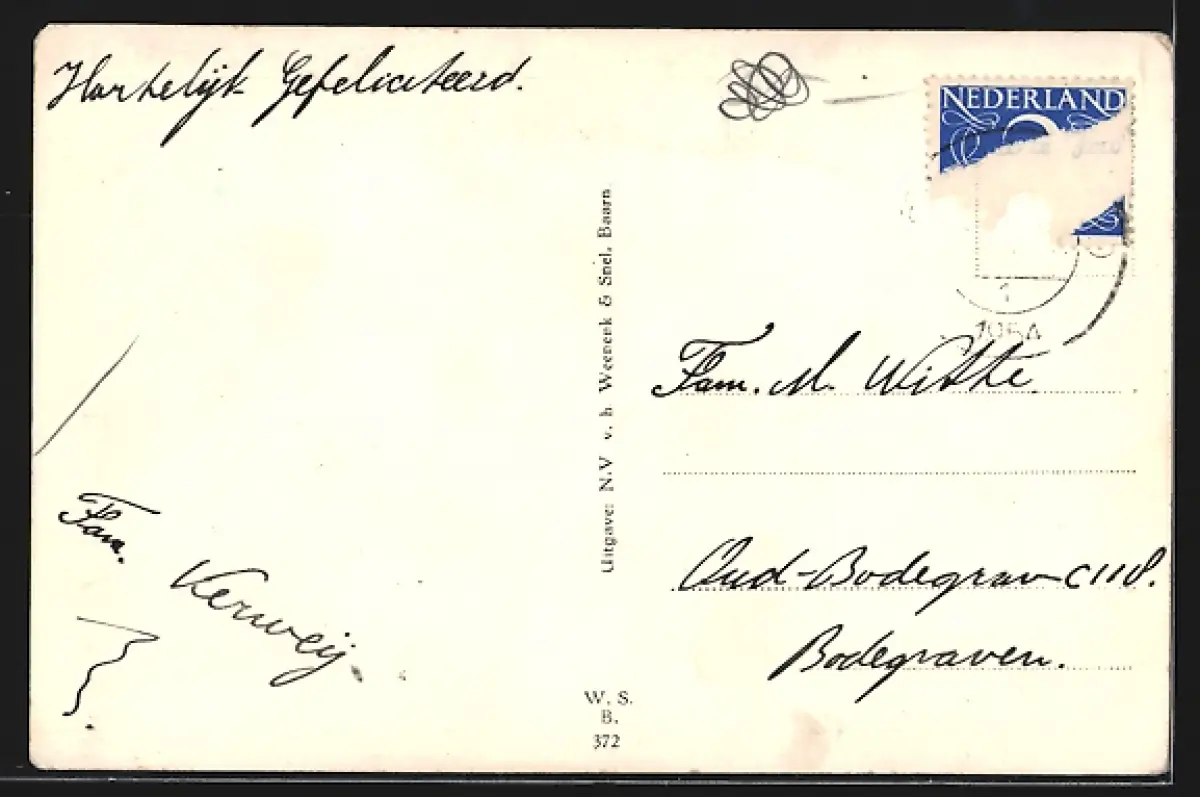 Hartelijk Gefeliciteerd.
Fam.
Kerweij.
Uitgave: N.V v. h. Weenenk & Snel. Baarn
W. S.
B.
372
NEDERLAND
1
1954
Fam. M. Witte.
Oud-Bodegrav C118.
Bodegraven.